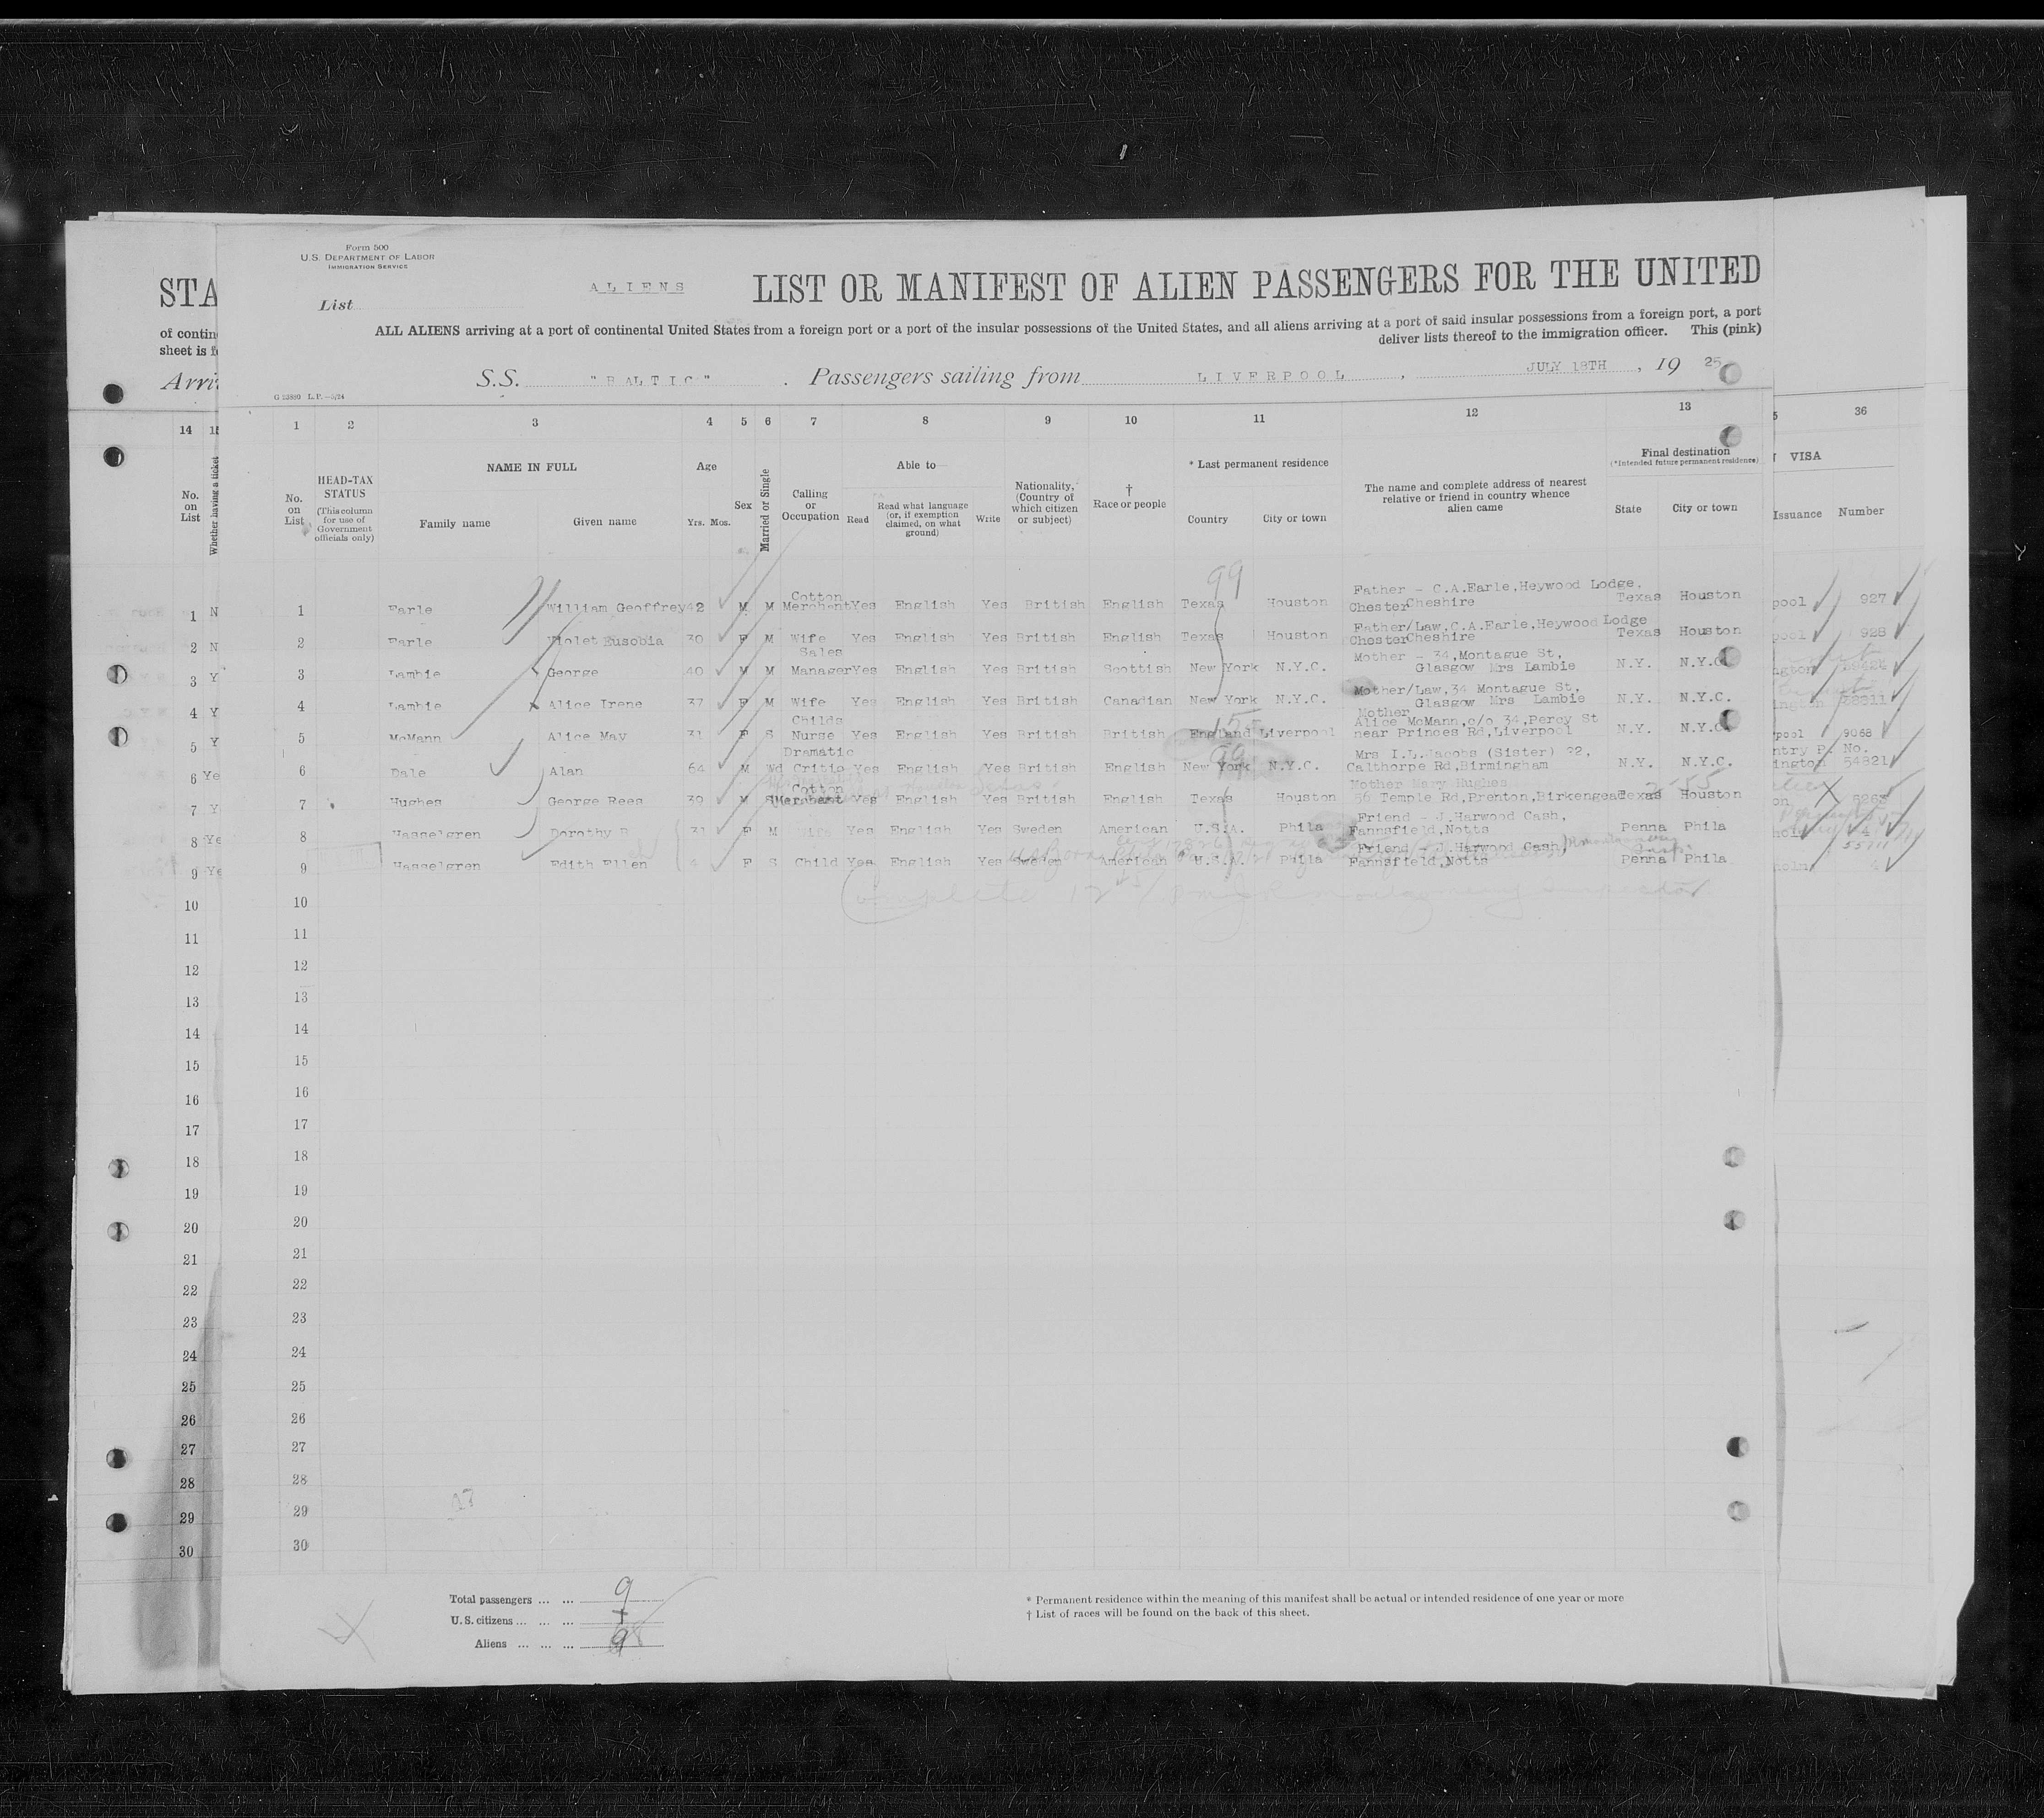 Form 500
U.S. DEPARTMENT OF LABOR
IMMIGRATION SERVICE
STA
ALIENS
LIST OR MANIFEST OF ALIEN PASSENGERS FOR THE UNITED
List
of contin
ALL ALIENS arriving at a port of continental United States from a foreign port or a port of the insular possessions of the United States, and all aliens arriving at a port of said insular possessions from a foreign port, a port
sheet is f
deliver lists thereof to the immigration officer. This (pink)
Arri
S.S. "BALTIC" . Passengers sailing from LIVERPOOL, JULY 18TH, 19 25
G 23880 L.P.—5/24
14 15 1 2 3 4 5 6 7 8 9 10 11 12 13 36
No. on List
Whether having a ticket
No. on List
HEAD-TAX STATUS
(This column for use of Government officials only)
NAME IN FULL
Family name
Given name
Age
Yrs. Mos.
Sex
Married or Single
Calling or Occupation
Able to—
Read
Read what language (or, if exemption claimed, on what ground)
Write
Nationality, (Country of which citizen or subject)
† Race or people
* Last permanent residence
Country
City or town
The name and complete address of nearest relative or friend in country whence alien came
Final destination
(*Intended future permanent residence)
State
City or town
VISA
Issuance
Number
99
1 N 1 Earle William Geoffrey 42 M M Cotton Merchant Yes English Yes British English Texas Houston Father - C.A.Earle,Heywood Lodge, Chester Cheshire Texas Houston pool 927
2 N 2 Earle Violet Eusobia 30 F M Wife Yes English Yes British English Texas Houston Father/Law,C.A.Earle,Heywood Lodge Chester Cheshire Texas Houston pool 928
3 Y 3 Lambie George 40 M M Sales Manager Yes English Yes British Scottish New York N.Y.C. Mother - 34,Montague St, Glasgow Mrs Lambie N.Y. N.Y.C. ngton
4 Y 4 Lambie Alice Irene 37 F M Wife Yes English Yes British Canadian New York N.Y.C. Mother/Law,34 Montague St, Glasgow Mrs Lambie N.Y. N.Y.C. ington
5 Y 5 McMann Alice May 31 F S Childs Nurse Yes English Yes British British England Liverpool Mother Alice McMann,c/o 34,Percy St near Princes Rd,Liverpool N.Y. N.Y.C. pool 9068
6 Ye 6 Dale Alan 64 M Wd Dramatic Critic Yes English Yes British English New York N.Y.C. Mrs I.L.Jacobs (Sister) 22, Calthorpe Rd,Birmingham N.Y. N.Y.C. ntry P. No. ington 54821
7 Y 7 Hughes George Rees 39 M S Cotton Merchant Yes English Yes British English Texas Houston Mother Mary Hughes 56 Temple Rd,Prenton,Birkengead Texas Houston on 6263
8 Ye 8 Hasselgren Dorothy B 31 F M Yes English Yes Sweden American U.S.A. Phila Friend - J.Harwood Cash, Fannsfield,Notts Penna Phila holm 4
9 Ye 9 Hasselgren Edith Ellen 4 F S Child Yes English Yes Sweden American U.S.A. Phila Friend - J.Harwood Cash, Fannsfield,Notts Penna Phila holm 4
Complete
10 10
11 11
12 12
13 13
14 14
15 15
16 16
17 17
18 18
19 19
20 20
21 21
22 22
23 23
24 24
25 25
26 26
27 27
28 28
29 29
30 30
Total passengers ... ... 9
U.S. citizens ... ... ...
Aliens ... ... ... 9
* Permanent residence within the meaning of this manifest shall be actual or intended residence of one year or more
† List of races will be found on the back of this sheet.